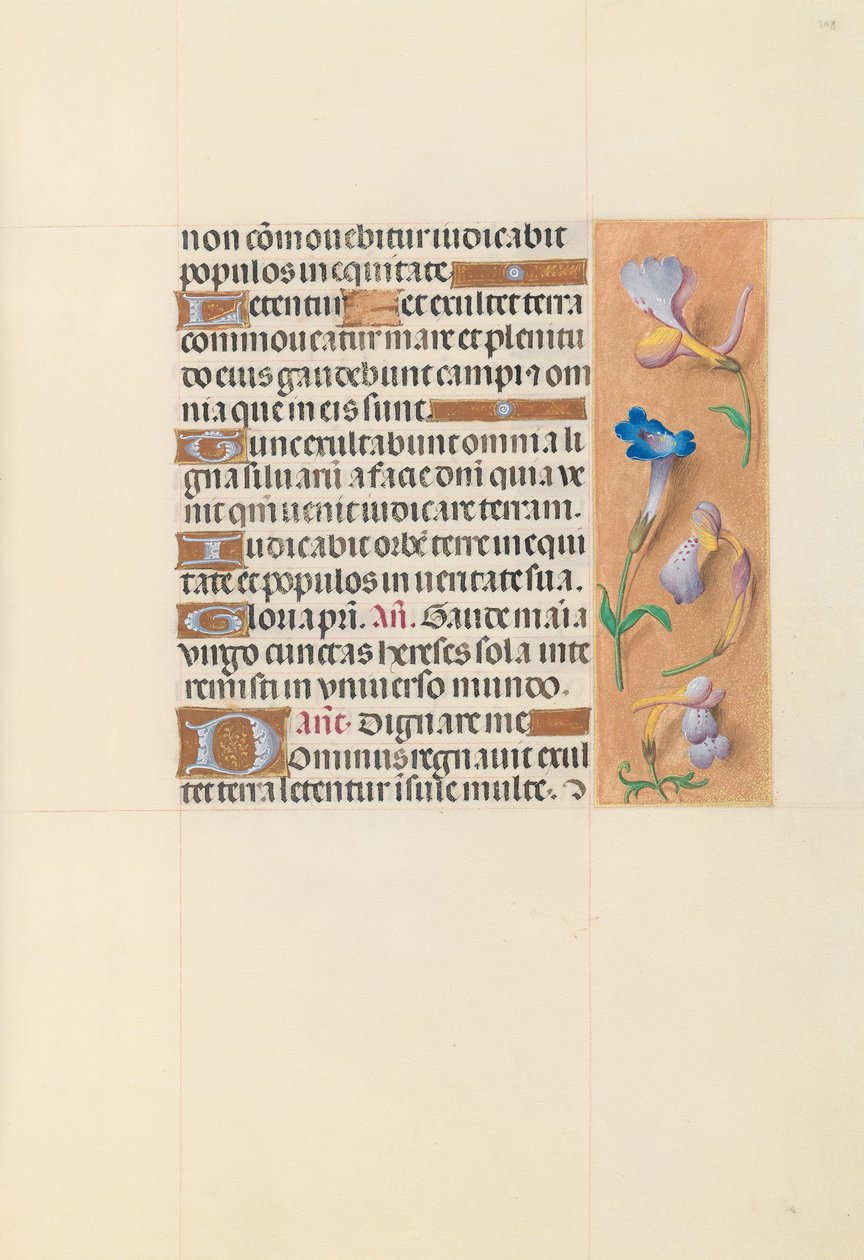 108
non cõmouebitur iudicabit
populos in equitate
Letentur et exultet terra
commoueatur mare et plenitu
do eius gaudebunt campi ⁊ om
nia que in eis sunt.
Tunc exultabunt omnia li
gna siluarũ a facie dñi quia ve
nit qm̃ uenit iudicare terram.
Iudicabit orbẽ terre in equi
tate et populos in ueritate sua.
Gloria pr̃i. Añ. Gaude maria
virgo cunctas hereses sola inte
remisti in vniuerso mundo.
Añt. Dignare me
Dominus regnauit exul
tet terra letentur ĩsule multe. D